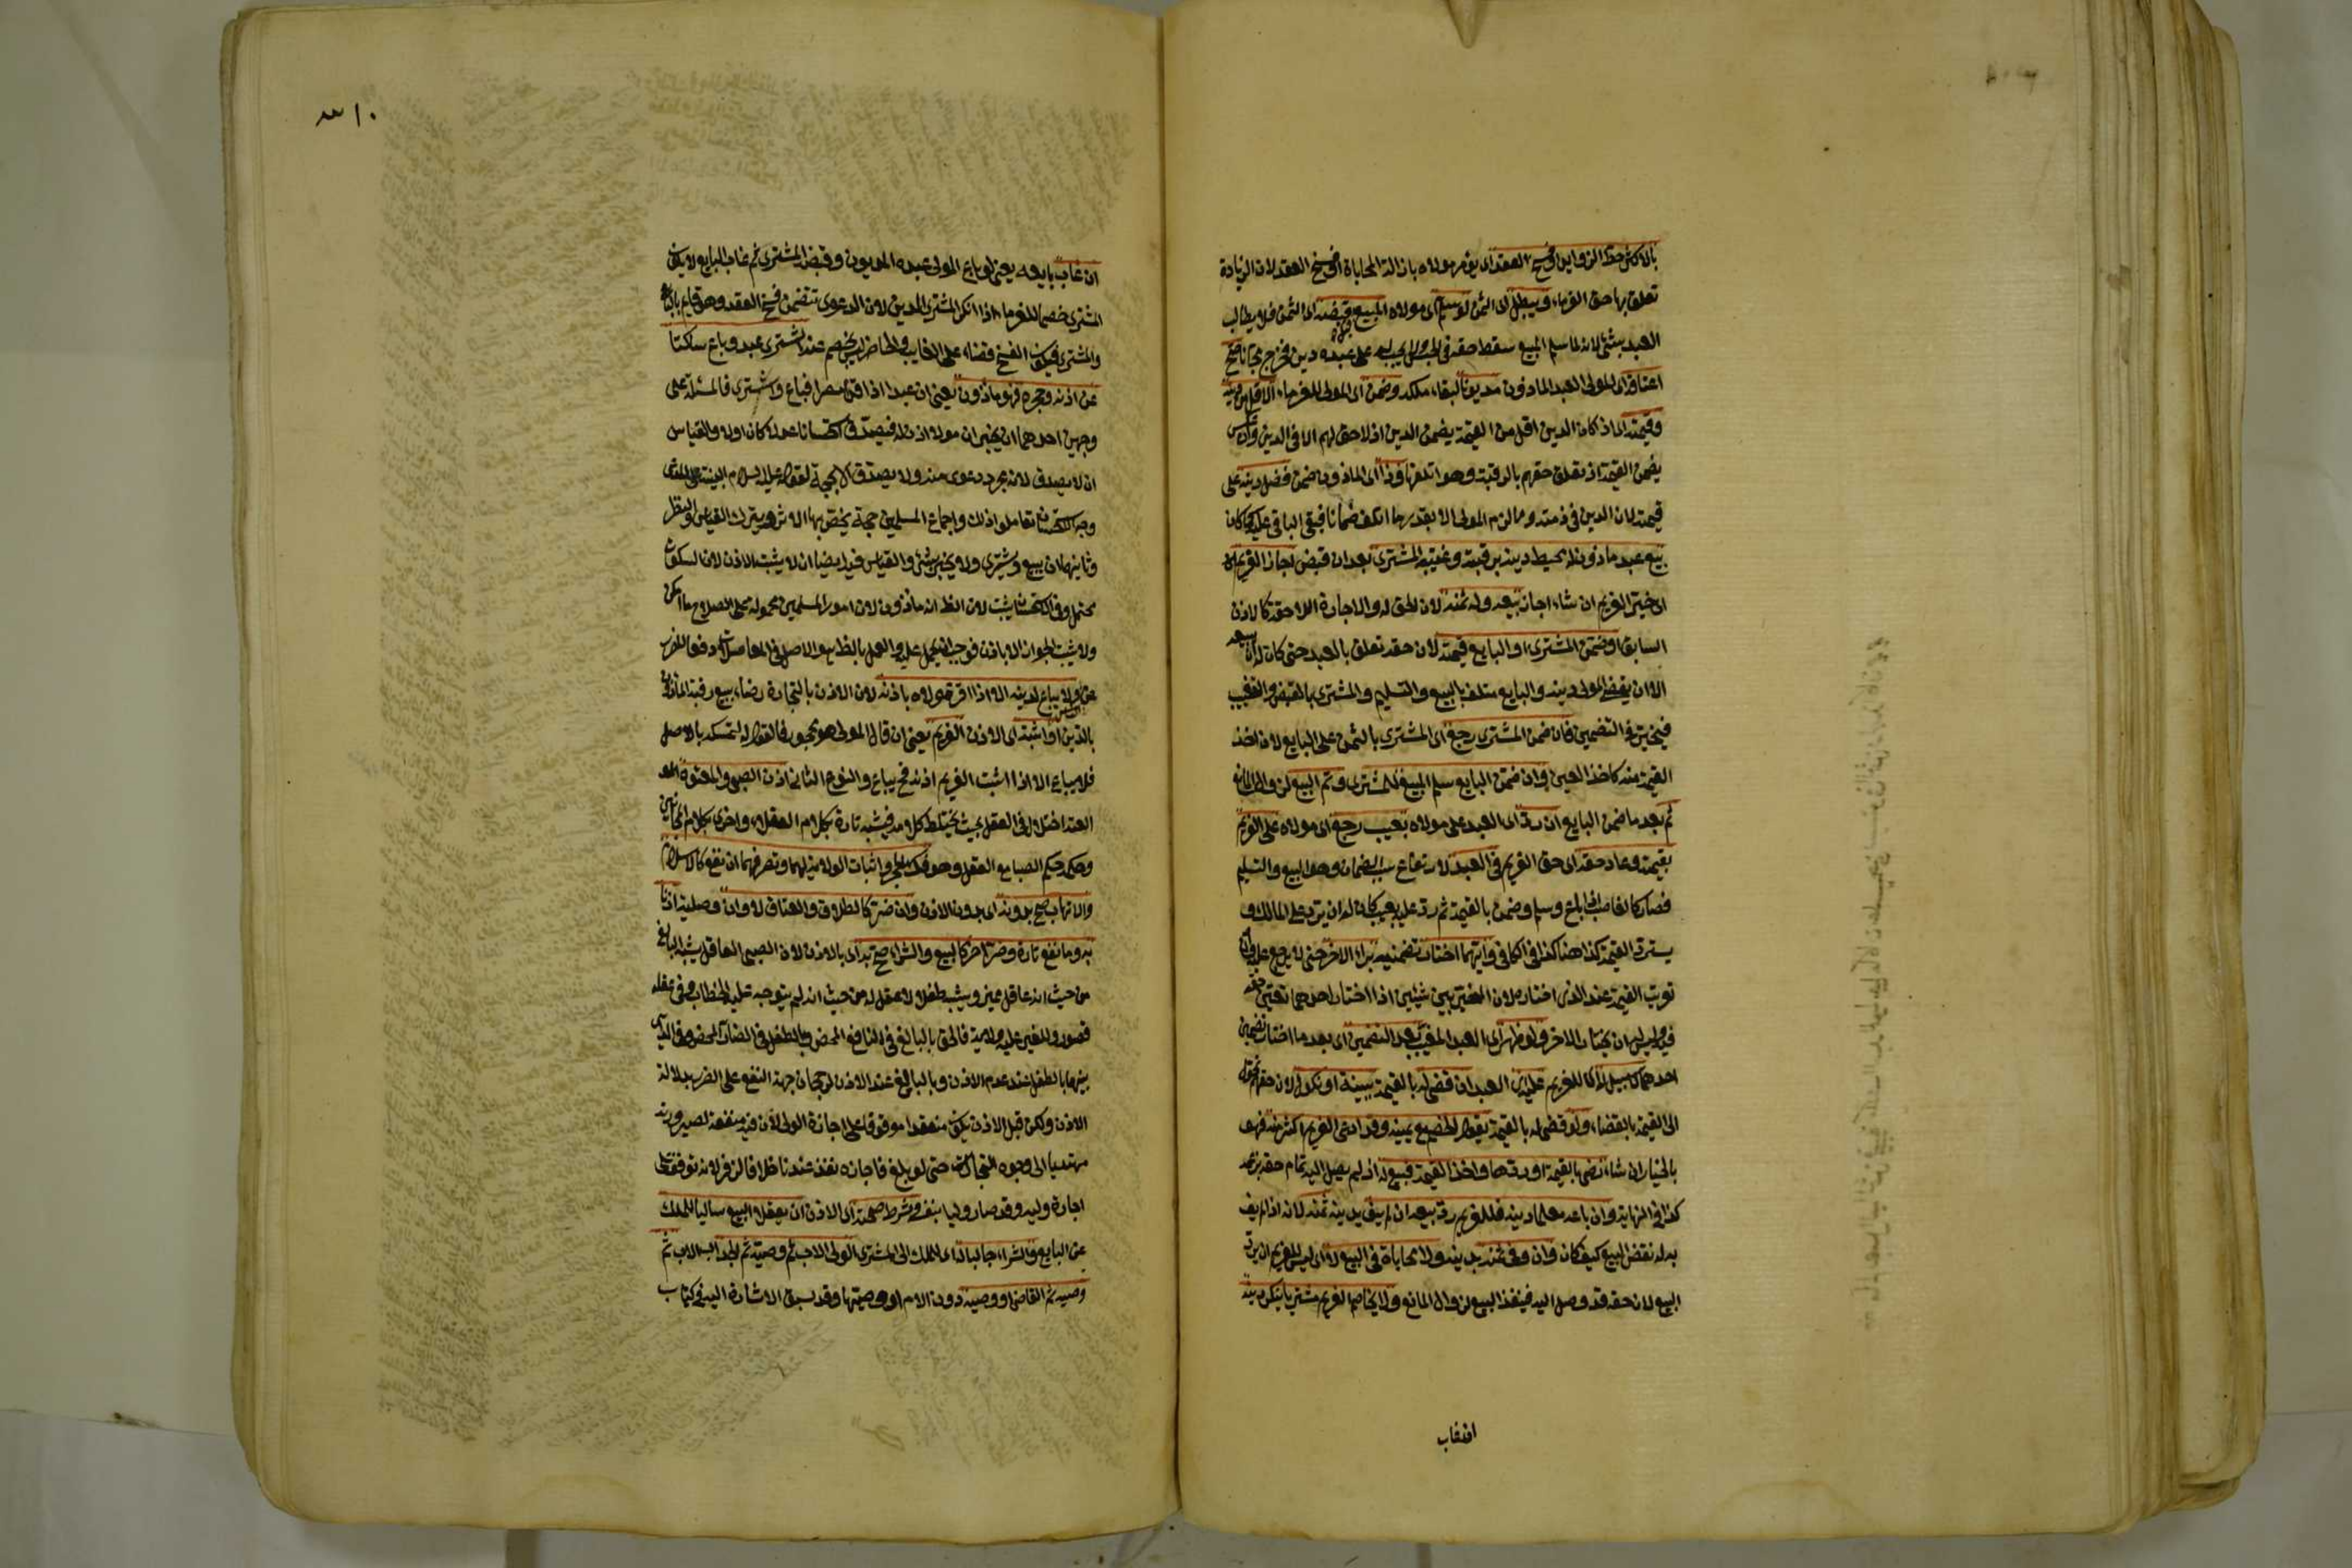 بالاكثر حط الزوايد او فسخ العقد اى يؤمر مولاه بازالة المحاباة او فسخ العقد لان الزيادة
تعلق بها حق الغرماء ويبطل اى الثمن لو سلم اى مولاه المبيع قبل قبضه اى الثمن فلا يطالب
العبد بشئ لانه لما سلم المبيع سقط حقه فى الحبس ولا يجب له على عبده دين فخرج مجانا صح
اعتاقه اى المولى العبد الماذون مديونا لبقاء ملكه وضمن اى المولى للغرماء الاقل من دينه
وقيمته اى اذا كان الدين اقل من القيمة يضمن الدين اذ لا حق لهم الا فى الدين وان عكس
يضمن القيمة اذ تعلق حقهم بالرقبة وهو اتلفها و اى الماذون ضمن فضل دينه على
قيمته لان الدين فى ذمته وما لزم المولى الا بقدر ما اتلف ضمانا فبقى الباقى عليه كما كان
بيع عبد ماذون له محيط دينه برقبته وغيبه المشترى بعد ان قبض اجاز الغريم
اى خير الغريم ان شاء اجاز بيعه وله ثمنه لان الحق له والاجازة اللاحقة كالاذن
السابق او ضمن المشترى او البايع قيمته لان حقه تعلق بالعبد حتى كان له ان يبيعه
الا ان يقضى المولى دينه والبايع متلف بالبيع والتسليم والمشترى بالقبض والتغييب
فيخير فى التضمين فان ضمن المشترى رجع اى المشترى بالثمن على البايع لان اخذ
القيمة منه كاخذ العين وان ضمن البايع سلم المبيع للمشترى وتم البيع لزوال المانع
ثم بعد ما ضمن البايع ان رد اى العبد على مولاه بعيب رجع اى مولاه على الغريم
بقيمته وعاد حقه اى حق الغريم فى العبد لارتفاع سبب الضمان وهو البيع والتسليم
فصار كالغاصب اذا باع وسلم وضمن بالقيمة ثم رد عليه بعيب كان له ان يرد على المالك و
يسترد القيمة كذا هنا كذا فى الكافى وايهما اختار تضمينه برأ الاخر حتى لا يرجع عليه وان
تويت القيمة عند الذى اختاره لان المخير بين شيئين اذا اختار احدهما تعين حقه
فيه وليس له ان يختار الاخر ولو ظهر اى العبد المغيب بعد التضمين اى بعد ما اختار تضمين
احدهما لا سبيل له اى للغريم عليه اى العبد ان قضى له بالقيمة ببينة او نكول لان حقه تحول
الى القيمة بالقضاء ولو قضى له بالقيمة بقول الخصم مع يمينه وقد ادعى الغريم اكثر منه فهو
بالخيار ان شاء رضى بالقيمة او ردها واخذ العبد فبيع له اذ لم يصل اليه تمام حقه بزعمه
كذا فى النهاية وان باعه معلما دينه فللغريم رد بيعه ان لم يف بدينه ثمنه لانه اذا لم يف
به له نقض البيع كيف كان وان وفى ثمنه بدينه ولا محاباة فى البيع لا اى ليس للغريم ان يرد
البيع لان حقه قد وصل اليه فينفذ البيع لزوال المانع ولا يخاصم الغريم مشتريا ينكر دينه
ان غاب
ان غاب بايعه يعنى لو باع المولى عبده المديون وقبضه المشترى ثم غاب البايع لا يكون
المشترى خصما للغرماء اذا انكر المشترى الدين لان الدعوى تتضمن فسخ العقد وهو قايم بالبايع
والمشترى فيكون الفسخ قضاء على الغايب والحاضر ليس بخصم عنه اشترى عبد وباع ساكتا
عن اذنه وحجره فهو ماذون يعنى ان عبدا اذا قدم مصرا فباع واشترى فالمسئلة على
وجهين احدهما ان يخبر ان مولاه اذن له فيصدق استحسانا عدلا كان اولا والقياس
ان لا يصدق لانه مجرد دعوى منه ولا يصدق الا بحجة لقوله عليه السلام البينة على المدعى
وجه الاستحسان تعاملوا ذلك واجماع المسلمين حجة يخص بها الاثر ويترك القياس والنظر
وثانيهما ان يبيع ويشترى ولا يخبر بشئ والقياس فيه ايضا ان لا يثبت الاذن لان السكوت
محتمل وفى الاستحسان يثبت لان الظ انه ماذون لان امور المسلمين محمولة على الصلاح ما امكن
ولا يثبت الجواز الا باذن فوجب ان يحمل عليه والعمل بالظ هو الاصل فى المعاملات دفعا للضرر
عن ولا يباع لدينه الا اذا اقر مولاه باذنه لان الاذن بالتجارة رضاء ببيع رقبة الماذون
بالدين او اثبته اى الاذن الغريم يعنى ان قال المولى هو محجور فالقول له لتمسكه بالاصل
فلا يباع الا اذا اثبت الغريم اذنه فح يباع والنوع الثانى اذن الصبى والمعتوه
العته اختلال فى العقل بحيث يختلط كلامه فيشبه تارة بكلام العقلاء واخرى بكلام المجانين
وحكمه حكم الصبا مع العقل وهو فك الحجر واثبات الولاية لهما وتصرفهما ان نفع كالاسلام
والاتهاب صح بدونه اى بدون الاذن وان ضر كالطلاق والعتاق لا وان وصلية اذنا
به وما نفع تارة وضر اخر كالبيع والشراء صح به اى بالاذن لان الصبى العاقل يشبه البالغ
من حيث انه عاقل مميز ويشبه طفلا لا عقل له من حيث انه لم يتوجه عليه الخطاب وفى عقله
قصور وللغير عليه ولاية فالحق بالبالغ فى النافع المحض وبالطفل فى الضار المحض وفى الدائر
بينهما بالطفل عند عدم الاذن وبالبالغ عند الاذن لرجحان جهة النفع على الضرر بدلالة
الاذن ولكن قبل الاذن يكون منعقدا موقوفا على اجازة الولى لان فيه منفعة لصيرورته
مهتديا الى وجوه التجارات حتى لو بلغ فاجازه نفذ عندنا خلافا لزفر لانه توقف على
اجازة وليه وقد صار وليا بنفسه وشرط صحته اى الاذن ان يعقلا البيع سالبا للملك
عن البايع والشراء جالبا له اى للملك الى المشترى الولى الاب ثم وصيه ثم الجد اب الاب ثم
وصيه ثم القاضى او وصيه دون الام او وصيها وقد سبق الاشارة اليه فى كتاب